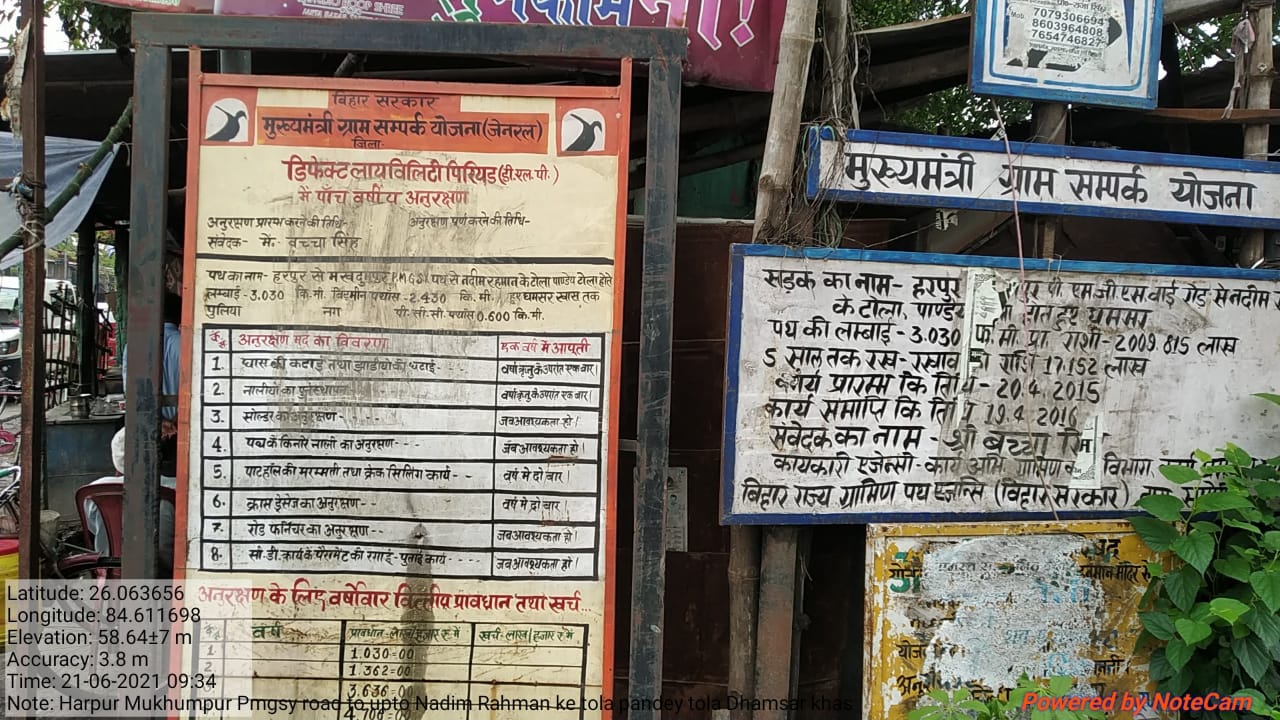 बिहार सरकार
मुख्यमंत्री ग्राम सम्पर्क योजना (जेनरल)
जिला-
डिफेक्ट लायविलिटी पिरियड (डी.एल.पी.)
में पाँच वर्षीय अनुरक्षण
अनुरक्षण प्रारम्भ करने की तिथि- अनुरक्षण पूर्ण करने की तिथि-
संवेदक- मे. बच्चा सिंह
पथ का नाम- हरपुर से मखदुमपुर P.M.G.S.Y पथ से नदीम रहमान के टोला पाण्डेय टोला होते
लम्बाई- 3.030 कि.मी. विटुमिन पथ्यांस - 2.430 कि.मी. हुए धमसर खास तक
पुलिया नग पी.सी.सी. पथ्यांस 0.600 कि.मी.
क्र. अनुरक्षण मद का विवरण एक वर्ष में आवृती
1. घास की कटाई तथा झाडीयो की छटाई- वर्षा ऋतु के उपरांत एक बार
2. नालीयो का पुर्नस्थापन वर्षा ऋतु के उपरांत एक बार
3. सोल्डर का अनुरक्षण- जब आवश्यकता हो।
4. पथ के किनारे नाली का अनुरक्षण- जब आवश्यकता हो।
5. पाटहॉल की मरम्मती तथा क्रेक सिलिंग कार्य- वर्ष मे दो बार
6. क्रास ड्रेनेज का अनुरक्षण- वर्ष मे दो बार
7. रोड फर्निचर का अनुरक्षण- जब आवश्यकता हो।
8. सी.डी. कार्य के पैरामेट की रंगाई-पुताई कार्य- जब आवश्यकता हो।
अनुरक्षण के लिए वर्षोवार वित्तीय प्रावधान तथा खर्च...
क्र. वर्ष प्रावधान-लाख/हजार रु में खर्च-लाख/हजार रु में
1. 1.030=00
2. 1.362=00
3.636=00
4.708=00
7079306694
Mob. 8603964808
7654746827
मुख्यमंत्री ग्राम सम्पर्क योजना
सड़क का नाम- हरपुर पी. एम.जी.एस.वाई रोड से नदीम
के टोला, पाण्डेय होते हुए धमसा
पथ की लाम्बाई- 3.030 कि.मी. प्रा. राशी- 2009.815 लाख
5 साल तक रख-रखाव की राशि 17.152 लाख
कार्य प्रारम्भ कि तिथि - 20.4.2015
कार्य समाप्ति कि तिथि 19.4.2016
संवेदक का नाम- श्री बच्चा सिंह
कार्यकारी एजेन्सी- कार्य ग्रामिण विभाग
बिहार राज्य ग्रामिण पथ एजेन्सि (विहार सरकार)
Latitude: 26.063656
Longitude: 84.611698
Elevation: 58.64±7 m
Accuracy: 3.8 m
Time: 21-06-2021 09:34
Note: Harpur Mukhumpur Pmgsy road to upto Nadim Rahman ke tola pandey tola Dhamsar khas
Powered by NoteCam